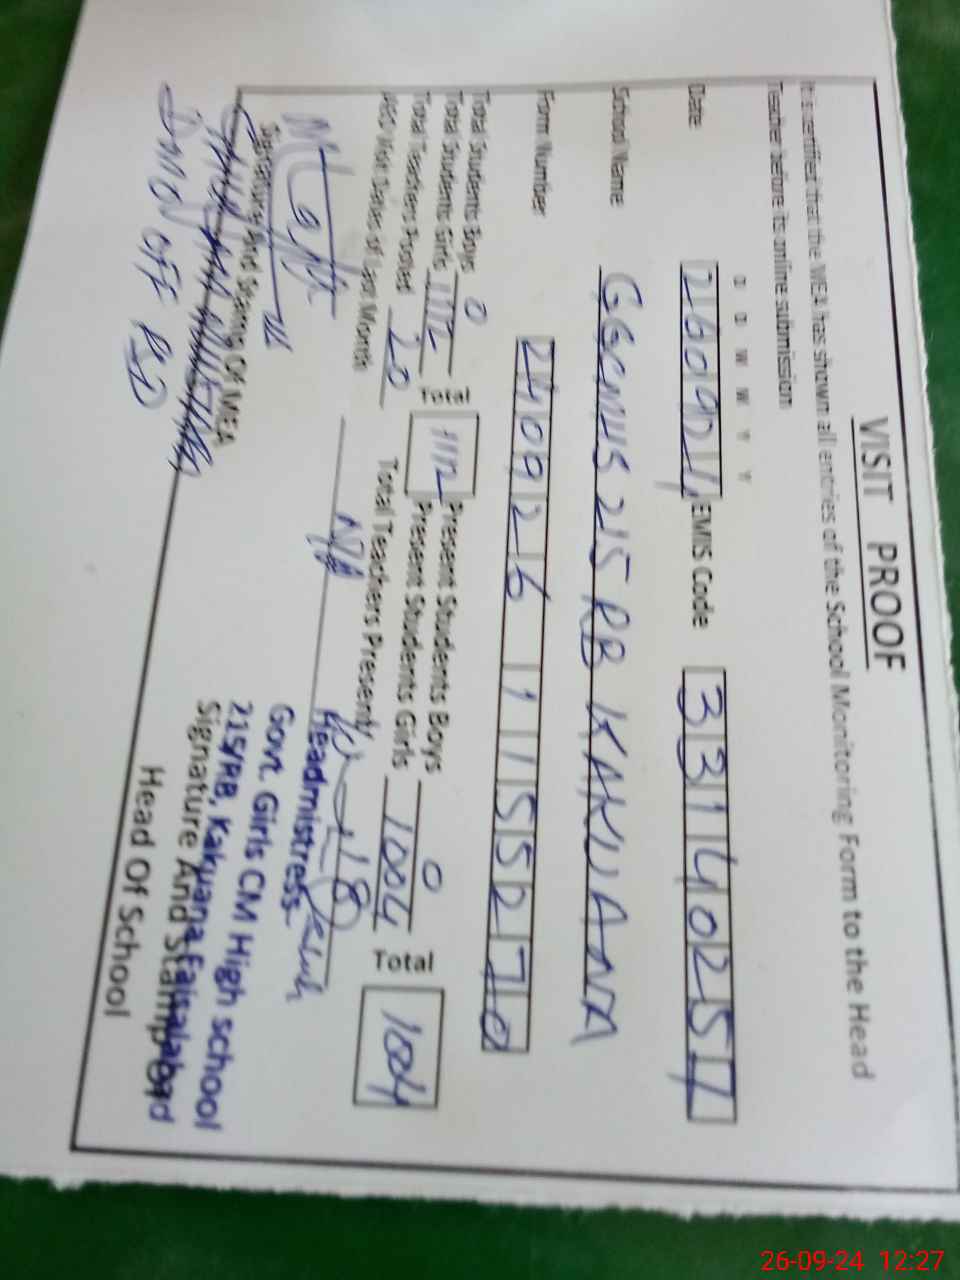 VISIT PROOF
It is certified that the MEA has shown all entries of the School Monitoring Form to the Head
Teacher before its online submission
D D M M Y Y
Date 260924 EMIS Code 33140257
School Name GGCMHS 215 RB KAKUANA
Form Number 240926 1115270
Total Students Boys 0 Present Students Boys 0
Total Students Girls 1112 Total 1112 Present Students Girls 1004 Total 1004
Total Teachers Posted 20 Total Teachers Present 18
AEO Visit Dates of Last Month N/A
Signature And Stamp Of MEA
Headmistress
Govt. Girls CM High school
215/RB, Kakuana Faisalabad
Signature And Stamp Of
Head Of School
26-09-24 12:27